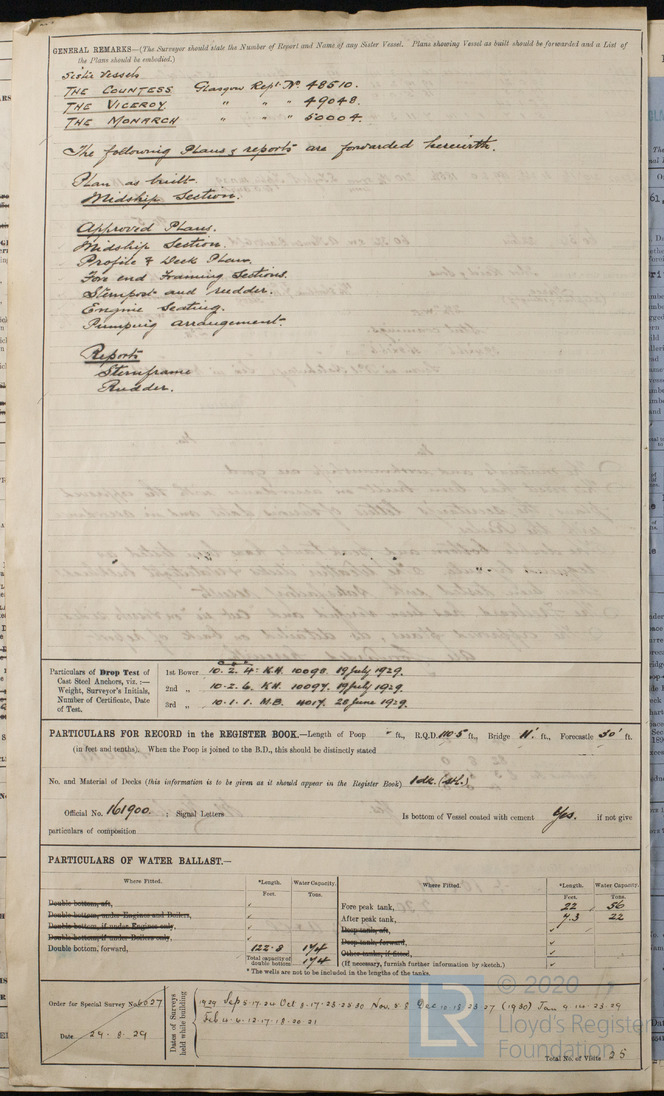 GENERAL REMARKS—(The Surveyor should state the Number of Report and Name of any Sister Vessel. Plans showing Vessel as built should be forwarded and a List of
the Plans should be embodied.)
Sister Vessels
THE COUNTESS Glasgow Rept. No. 48510.
THE VICEROY " " " 49048.
THE MONARCH " " " 50004.
The following Plans & reports are forwarded herewith.
Plan as built.
Midship Section.
Approved Plans.
Midship Section.
Profile & Deck Plan.
Fore end Framing Sections.
Sternpost and rudder.
Engine Seating.
Pumping arrangement.
Reports
Sternframe
Rudder.
Particulars of Drop Test of
Cast Steel Anchors, viz.:—
Weight, Surveyor's Initials,
Number of Certificate, Date
of Test.
1st Bower 10. 2. 4. K.H. 10098. 19 July 1929.
2nd " 10. 2. 6. K.H. 10097. 19 July 1929.
3rd " 10. 1. 1. M.B. 4017. 28 June 1929.
PARTICULARS FOR RECORD in the REGISTER BOOK.—Length of Poop " ft., R.Q.D. 110.5 ft., Bridge 11' ft., Forecastle 30' ft.
(in feet and tenths). When the Poop is joined to the B.D., this should be distinctly stated
No. and Material of Decks (this information is to be given as it should appear in the Register Book) 1 dk. (stl.)
Official No. 161900. ; Signal Letters Is bottom of Vessel coated with cement Yes. if not give
particulars of composition
PARTICULARS OF WATER BALLAST.—
Where Fitted. *Length. Water Capacity. Where Fitted. *Length. Water Capacity.
Feet. Tons. Feet. Tons.
Double bottom, aft, ✓ Fore peak tank, 22 56
Double bottom, under Engines and Boilers, ✓ After peak tank, 7.3 22
Double bottom, if under Engines only, ✓ Deep tank, aft, ✓
Double bottom, if under Boilers only, ✓ Deep tank, forward, ✓
Double bottom, forward, 122.8 174 Other tanks, if fitted, ✓
Total capacity of double bottom 174 (If necessary, furnish further information by sketch.) ✓
* The wells are not to be included in the lengths of the tanks.
Order for Special Survey No. 6027
Date 29.8.29
Dates of Surveys
held while building
1929 Sep 5.17.24 Oct 8.17.23.25.30 Nov. 5.8 Dec 11.18.23.27 (1930) Jan 9.14.23.29
Feb 4.6.12.17.18.20.21
Total No. of Visits 25
© 2020
LR
Lloyd's Register
Foundation